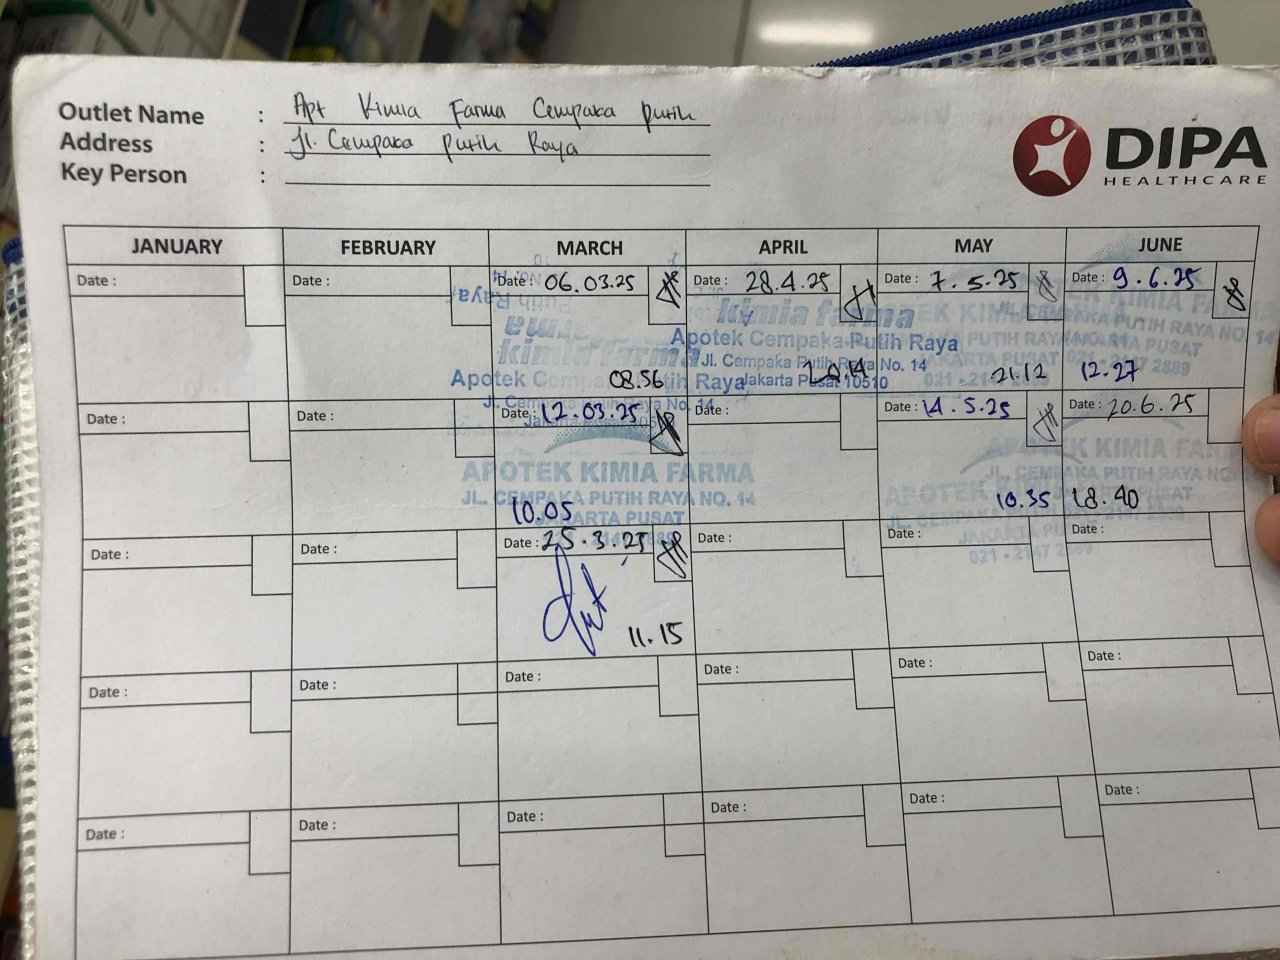 Outlet Name : Apt Kimia Farma Cempaka Putih
Address : Jl. Cempaka Putih Raya
Key Person :
DIPA
HEALTHCARE
JANUARY FEBRUARY MARCH APRIL MAY JUNE
Date : Date : Date : 06.03.25 Date : 28.4.25 Date : 7.5.25 Date : 9.6.25
kimia farma
Apotek Cempaka Putih Raya
Jl. Cempaka Putih Raya No. 14
Jakarta Pusat 10510
kimia farma
Apotek Cempaka Putih Raya
08.56 20.14 21.12 12.27
Date : Date : Date : 12.03.25 Date : Date : 14.5.25 Date : 20.6.25
APOTEK KIMIA FARMA
JL. CEMPAKA PUTIH RAYA NO. 14
JAKARTA PUSAT
10.05 10.35 18.40
Date : Date : Date : 25.3.25 Date : Date : Date :
11.15
Date : Date : Date : Date : Date : Date :
Date : Date : Date : Date : Date : Date :